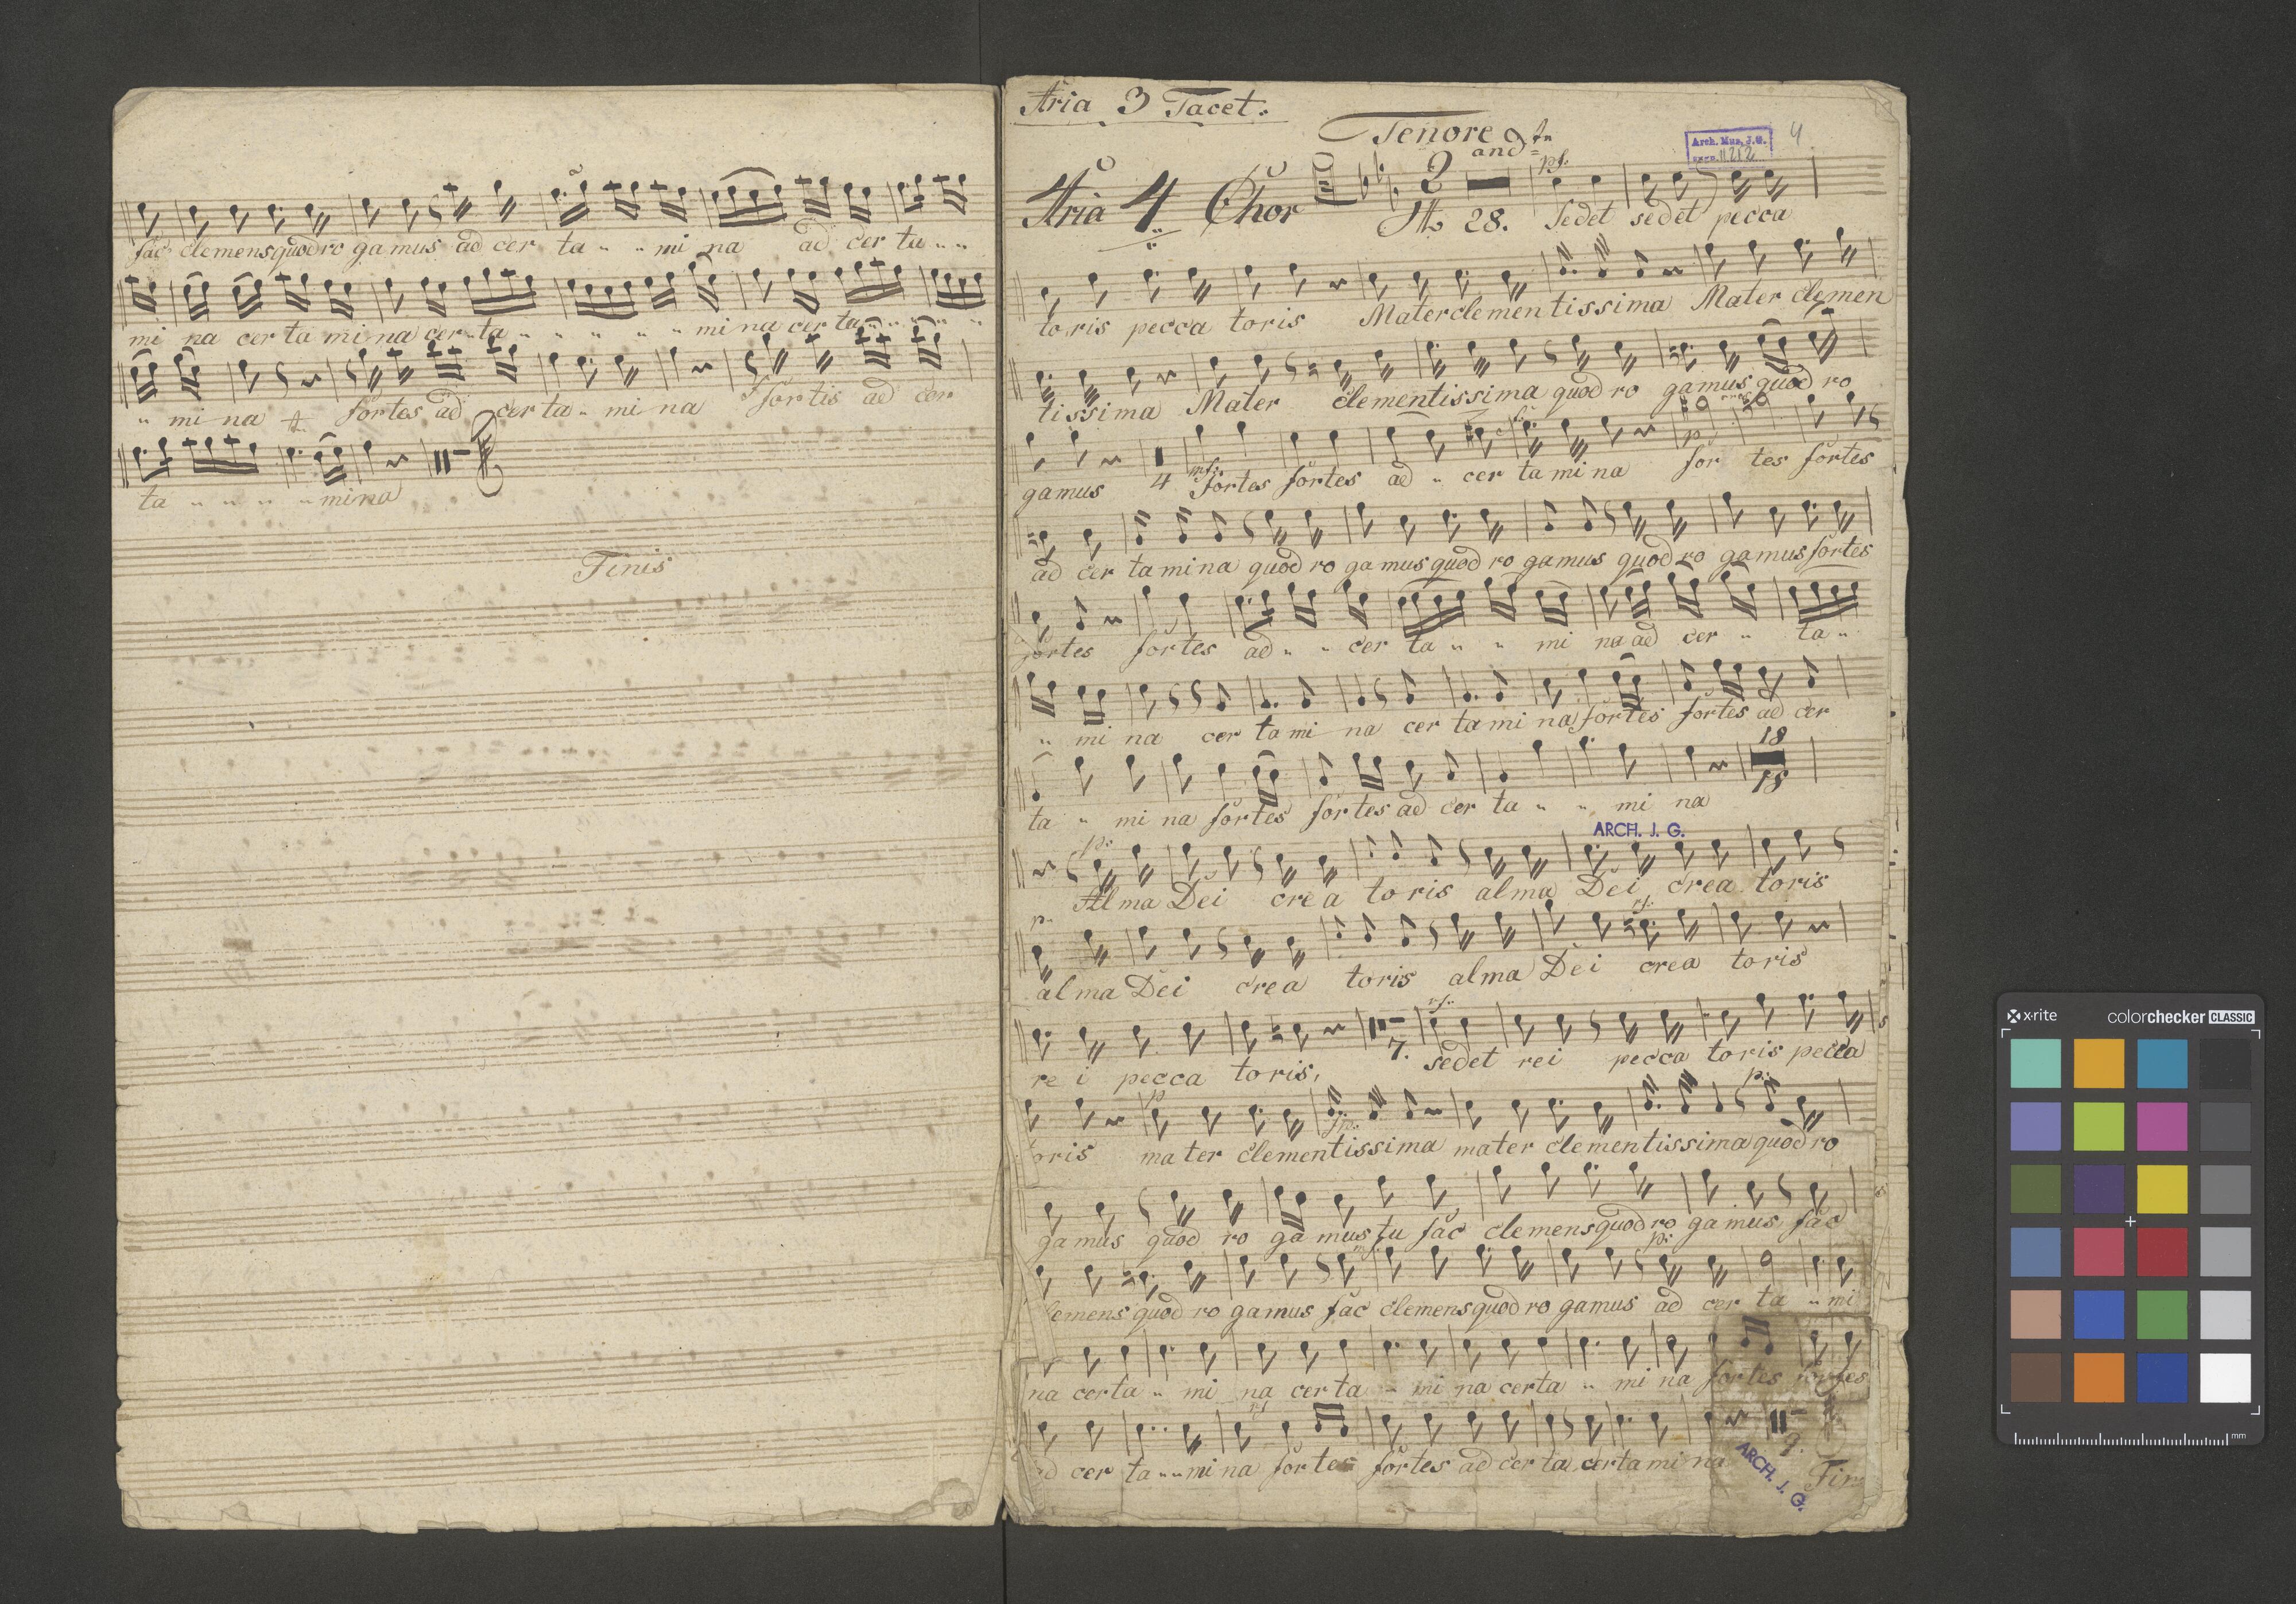 fac clemens quod ro gamus ad cer ta " " mi na ad cer ta " "
mi na cer ta mi na cer " ta " " " " " " mi na cer ta " " " " "
" mi na fortes ad cer ta " mi na fortis ad cer
ta " " " " mina
Finis
Aria 3 Tacet:
Tenore
andtn
Arch. Mus. J. G.
11212
4
Aria 4 Chor 2 28. pf.
Sedet sedet pecca
toris pecca toris Mater clementissima Mater clemen
tissima Mater clementissima quod ro gamus quod ro
gamus 4 mf: fortes fortes ad " cer ta mi na p for tes fortes
ad cer ta mi na quod ro ga mus quod ro gamus quod ro gamus fortes
fortes fortes ad " " cer ta " " mi na ad cer " ta "
" mi na cer ta mi na cer ta mi na fortes fortes ad cer
18
ta " mi na fortes fortes ad cer ta " " mi na 18
ARCH. J. G.
p:
Alma Dei crea toris alma Dei crea toris
p. rf.
alma Dei crea toris alma Dei crea toris
rf.
re i pecca toris, 7. sedet rei pecca toris pecca
p fp. p:
oris ma ter clementissima mater clementissima quod ro
gamus quod ro ga mus tu fac clemens quod ro gamus fac
mf. p:
lemens quod ro gamus fac clemens quod ro gamus ad cer ta " mi
na certa " mi na cer ta " mi na certa " mi na fortes fortes
rf 9.
ad cer ta " " mi na fortes fortes ad cer ta certa mi na
ARCH. J. G.
Fin
x-rite colorchecker CLASSIC
mm